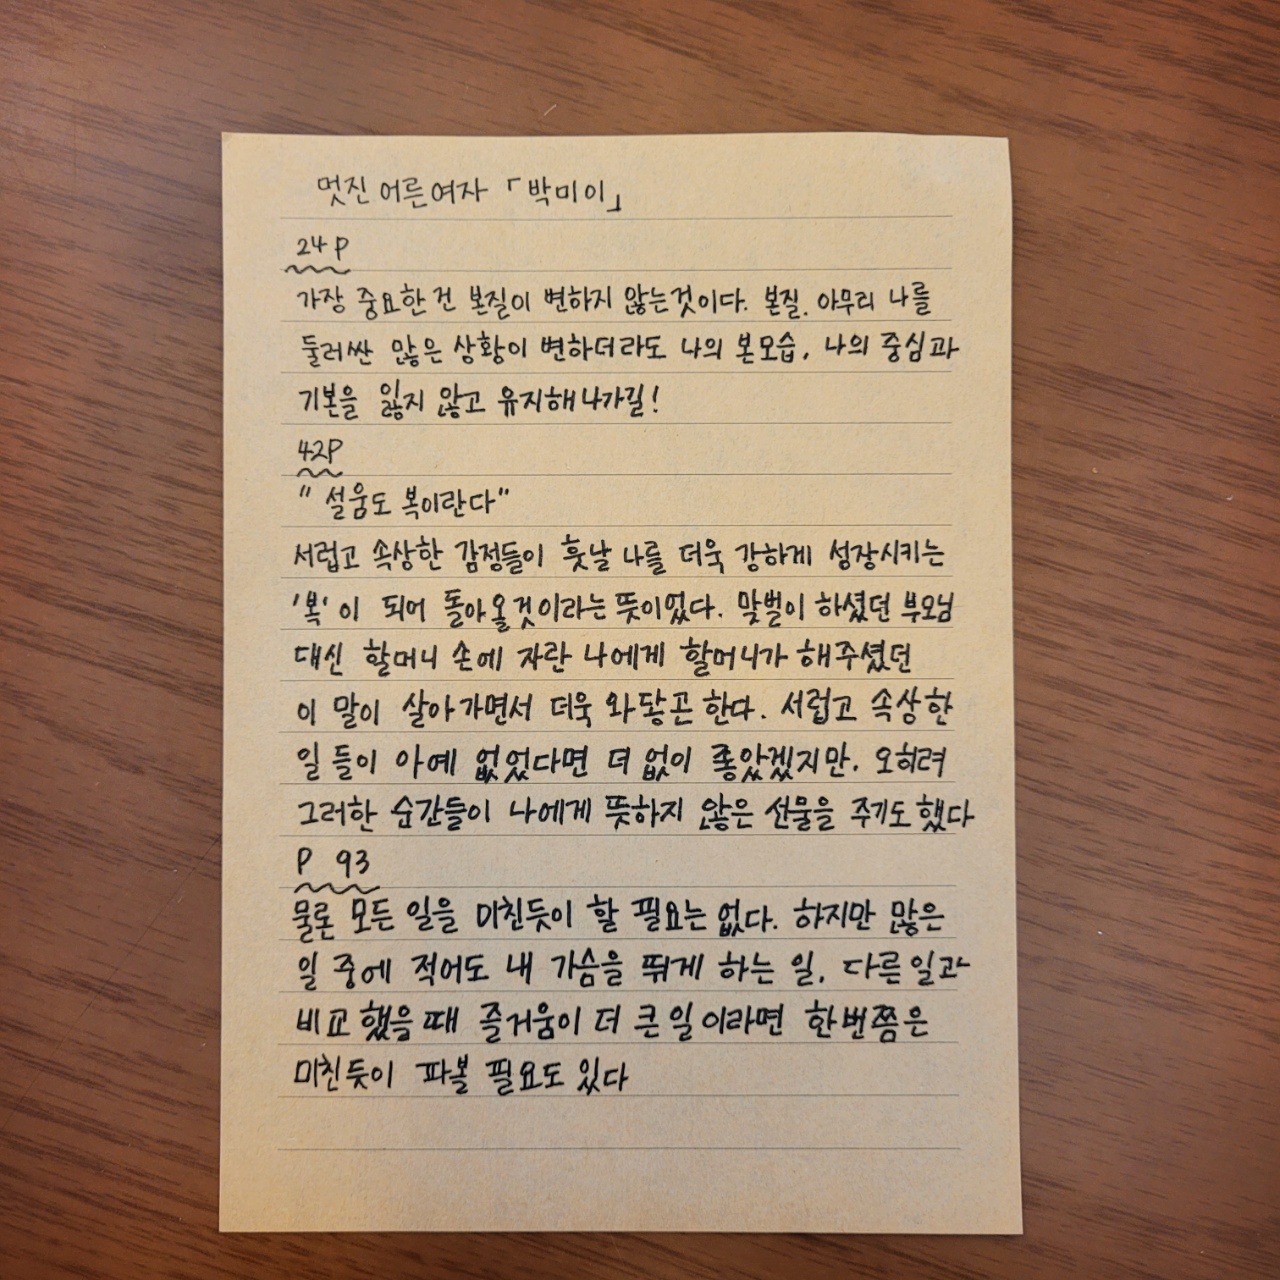 멋진 어른 여자 「박미이」
24 P
가장 중요한 건 본질이 변하지 않는것이다. 본질. 아무리 나를
둘러싼 많은 상황이 변하더라도 나의 본모습, 나의 중심과
기본을 잃지 않고 유지해나가길!
42P
"설움도 복이란다"
서럽고 속상한 감정들이 훗날 나를 더욱 강하게 성장시키는
'복'이 되어 돌아올것이라는 뜻이었다. 맞벌이 하셨던 부모님
대신 할머니 손에 자란 나에게 할머니가 해주셨던
이 말이 살아가면서 더욱 와닿곤 한다. 서럽고 속상한
일들이 아예 없었다면 더 없이 좋았겠지만. 오히려
그러한 순간들이 나에게 뜻하지 않은 선물을 주기도 했다
P 93
물론 모든 일을 미친듯이 할 필요는 없다. 하지만 많은
일 중에 적어도 내 가슴을 뛰게 하는 일, 다른일과
비교했을때 즐거움이 더 큰일이라면 한번쯤은
미친듯이 파볼 필요도 있다